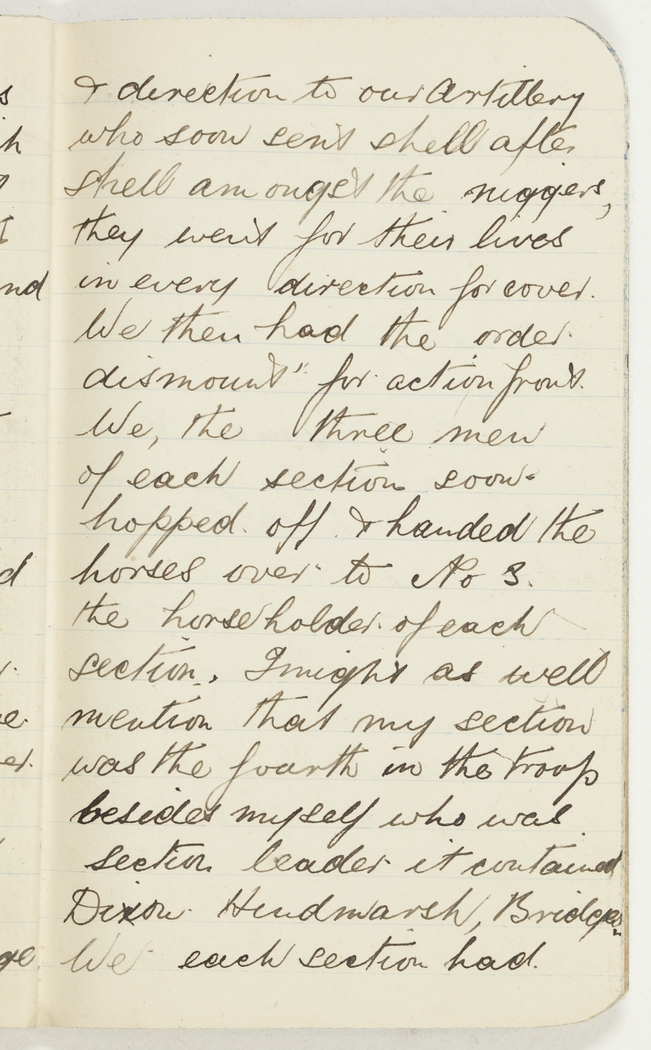 & direction to our Artillery
who soon sent shell after
shell amongst the niggers,
they went for their lives
in every direction for cover.
We then had the order
dismount" for action front.
We, the three men
of each section soon
hopped off & handed the
horses over to No 3.
the horseholder of each
section. I might as well
mention that my section
was the fourth in the troop
besides myself who was
section leader it contained
Dixon Hindmarsh, Bridges.
We each section had.